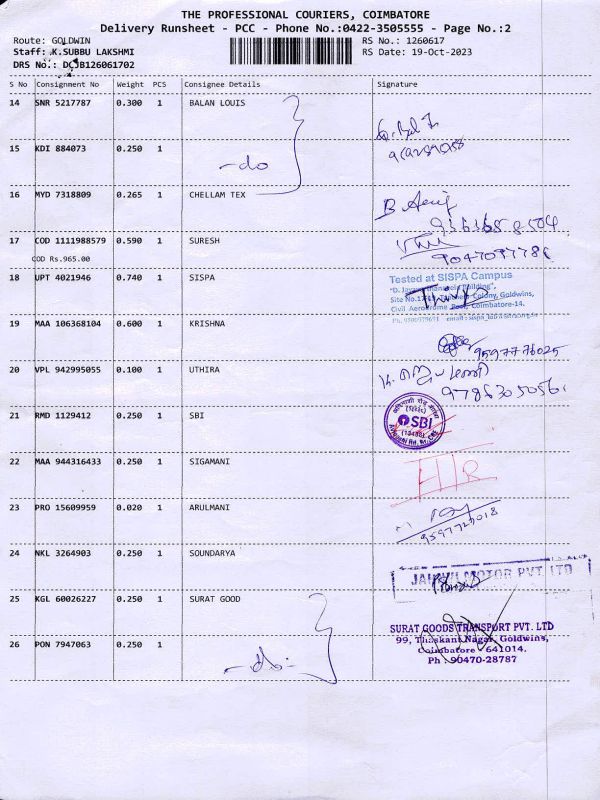 THE PROFESSIONAL COURIERS, COIMBATORE
Delivery Runsheet - PCC - Phone No.:0422-3505555 - Page No.:2
Route: GOLDWIN
RS No.: 1260617
Staff: K.SUBBU LAKSHMI
RS Date: 19-Oct-2023
DRS No.: DCJB126061702
S No Consignment No Weight PCS Consignee Details Signature
14 SNR 5217787 0.300 1 BALAN LOUIS
15 KDI 884073 0.250 1 -do
16 MYD 7318809 0.265 1 CHELLAM TEX
9363658504
17 COD 1111988579 0.590 1 SURESH
COD Rs.965.00
18 UPT 4021946 0.740 1 SISPA
Tested at SISPA Campus
Civil Aerodrome Post, Coimbatore-14.
19 MAA 106368104 0.600 1 KRISHNA
9597776025
20 VPL 942995055 0.100 1 UTHIRA
21 RMD 1129412 0.250 1 SBI
SBI
22 MAA 944316433 0.250 1 SIGAMANI
23 PRO 15609959 0.020 1 ARULMANI
24 NKL 3264903 0.250 1 SOUNDARYA
MOTOR PVT LTD
25 KGL 60026227 0.250 1 SURAT GOOD
SURAT GOODS TRANSPORT PVT. LTD
99, Thaskant Nagar, Goldwins,
Coimbatore - 641014.
Ph : 90470-28787
26 PON 7947063 0.250 1 -do-